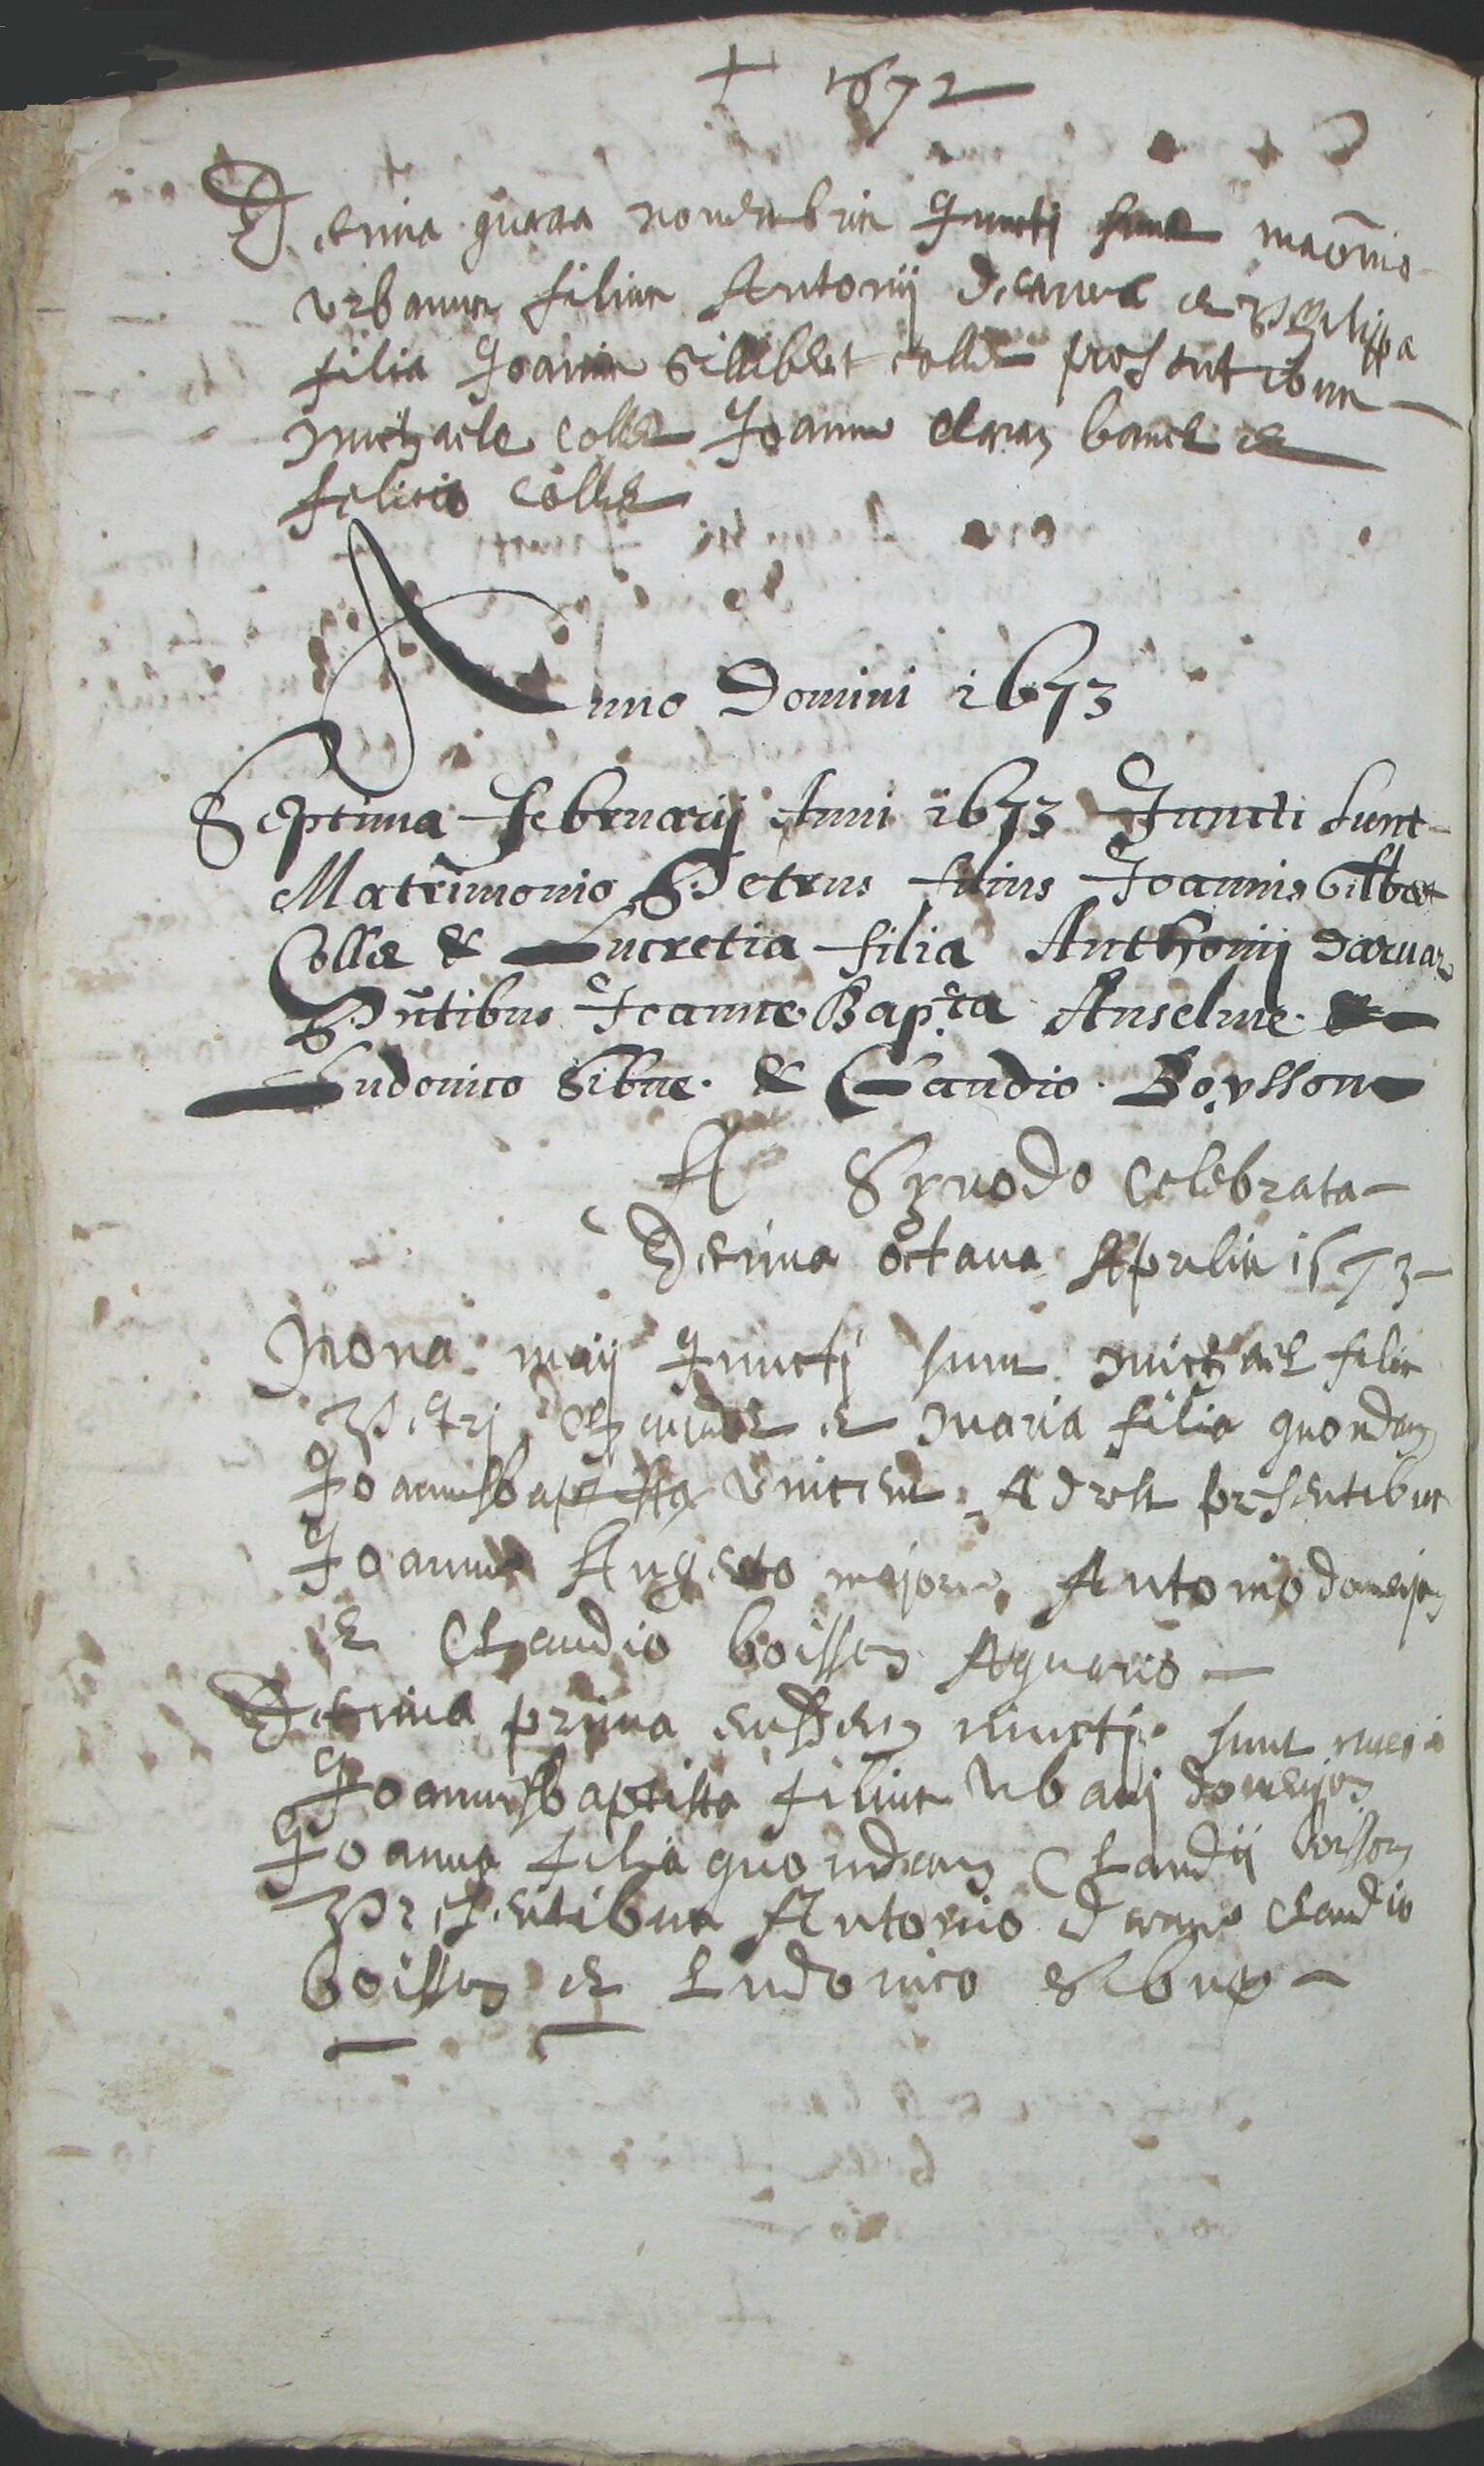 + 1672
Decima quarta novembris Juncti sunt mao͞nio
urbanus filius Antonij et Philippa
filia Joannis Gillibert colle presentibus
michaele colle Joanne et
felicio colle
Anno Domini 1673
Septima februarij Anni 1673 Juncti sunt
Matrimonio Petrus filius Joannis Gilbert
Colle & Lucretia filia Anthonij
Pn͞tibus Joanne Bap͞ta Anselme &
Ludovico Sibue & Claudio Boysson
A Synodo celebrata
Decima octava Aprilis 1673
Nona maij Juncti sunt michael filius
Petri et maria filia quondam
Joannisbaptista presentibus
Joanne Augusto majore Antonio
& Claudio boisson
Decima prima eiusdem iuncti sunt
Joannesbaptista filius Urbani
Joanna filia quondam Claudii boisson
Presentibus Antonio Claudio
boisson et Ludovico Sibue